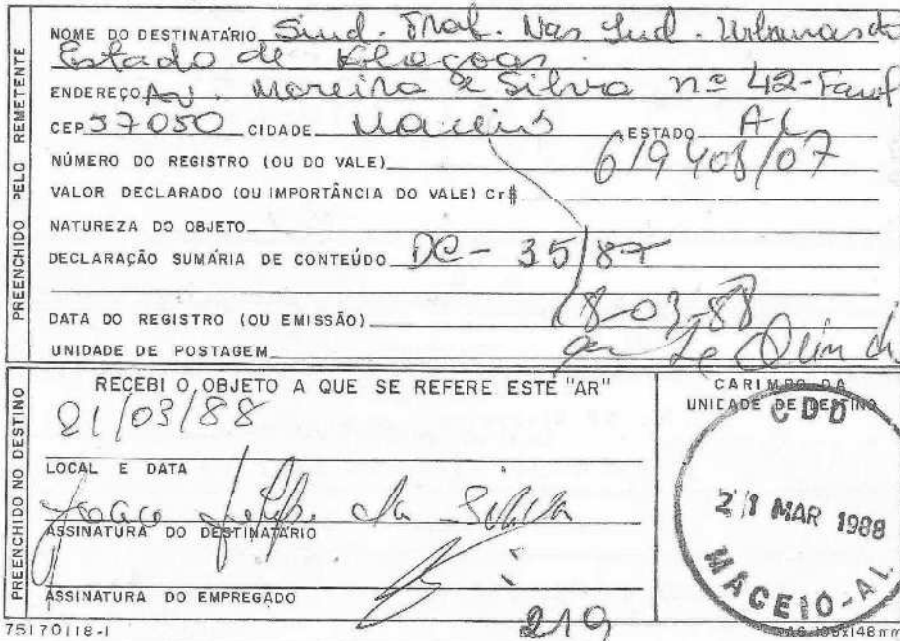 PREENCHIDO PELO REMETENTE
NOME DO DESTINATÁRIO Sind. Trab. Nas Ind. Urbanas do
Estado de Alagoas
ENDEREÇO Av. Moreira e Silva nº 42-Farol
CEP 57050 CIDADE Maceió ESTADO AL
NÚMERO DO REGISTRO (OU DO VALE) 619408/07
VALOR DECLARADO (OU IMPORTÂNCIA DO VALE) Cr$
NATUREZA DO OBJETO
DECLARAÇÃO SUMÁRIA DE CONTEÚDO DC - 35/87
DATA DO REGISTRO (OU EMISSÃO) 18-03-88
UNIDADE DE POSTAGEM
PREENCHIDO NO DESTINO
RECEBI O OBJETO A QUE SE REFERE ESTE "AR"
21/03/88
LOCAL E DATA
da Silva
ASSINATURA DO DESTINATÁRIO
ASSINATURA DO EMPREGADO
219
CARIMBO DA
UNIDADE DE DESTINO
CDD
21 MAR 1988
MACEIÓ-AL
75170118-1
A6-105x148mm